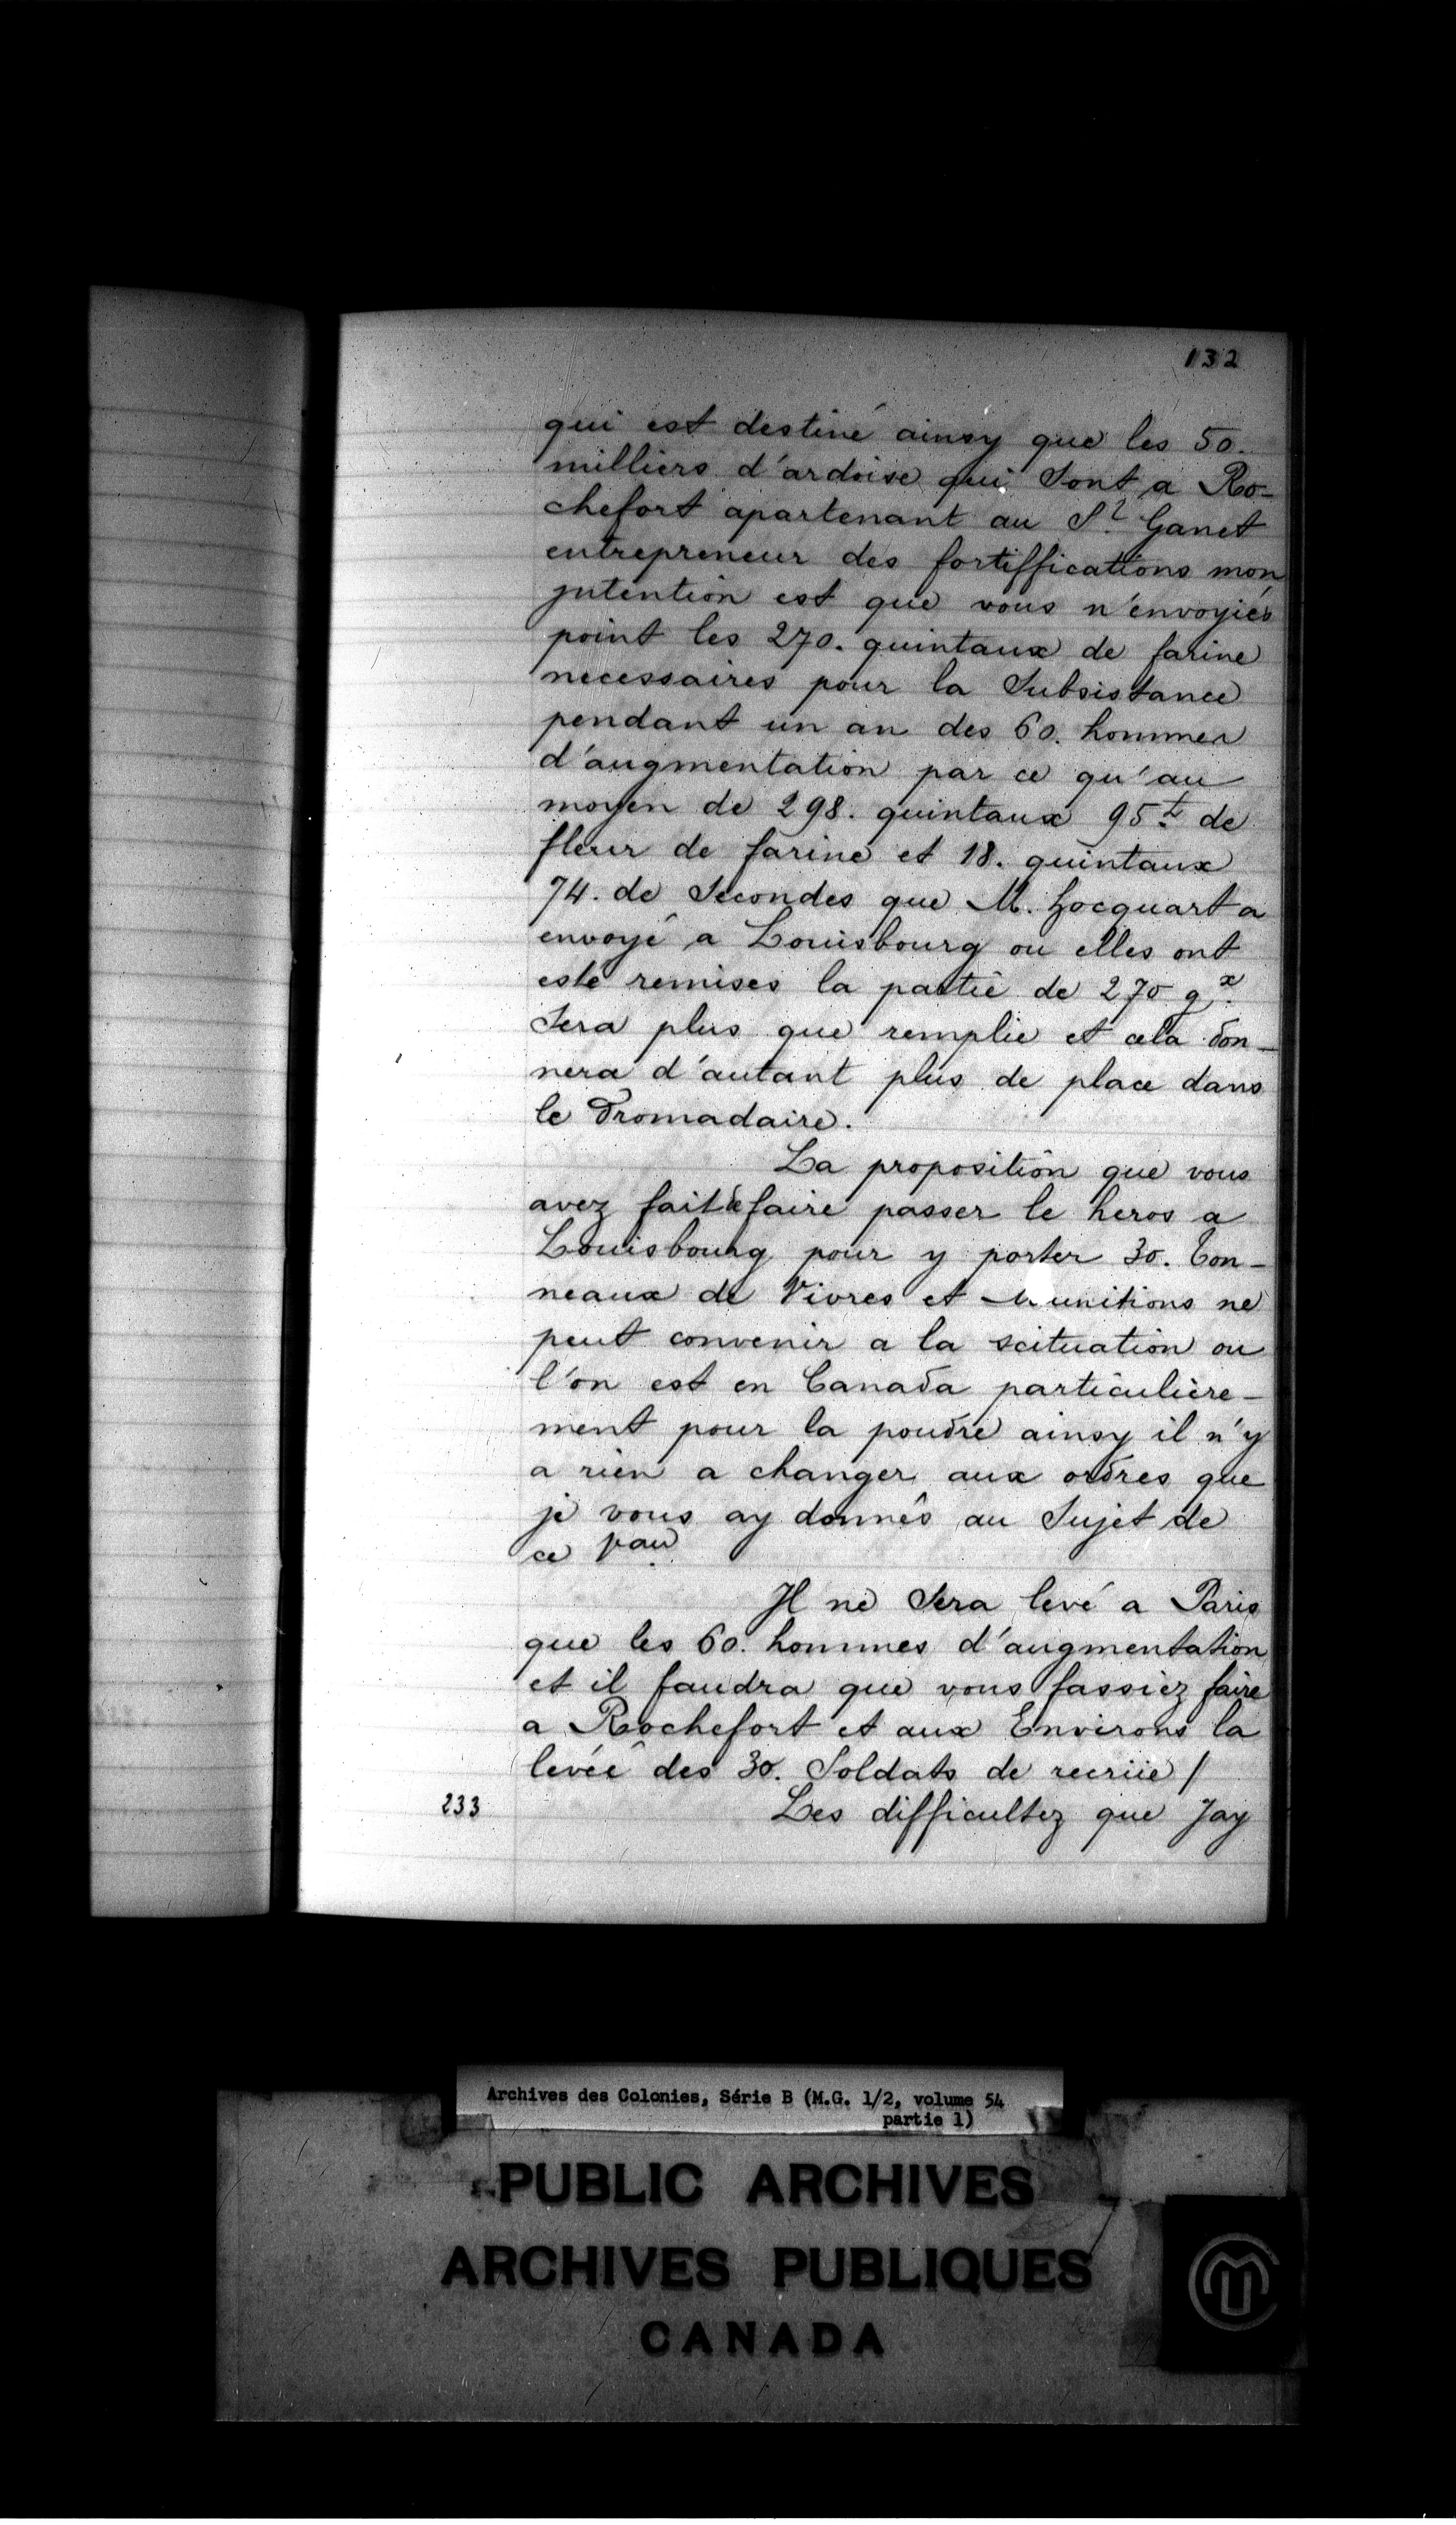 132
qui est destiné ainsy que les 50.
milliers d'ardoise qui sont a Ro-
chefort apartenant au Sr. Ganet
entrepreneur des fortiffications mon
jntention est que vous n'envoyiés
point les 270. quintaux de farine
necessaires pour la Subsistance
pendant un an des 60. hommes
d'augmentation par ce qu'au
moyen de 298. quintaux 95 t. de
fleur de farine et 18. quintaux
74. de Secondes que M. hocquart a
envoyé a Louisbourg ou elles ont
esté remises la partie de 270 qx.
Sera plus que remplie et cela don-
nera d'autant plus de place dans
le Dromadaire.
La proposition que vous
avez fait de faire passer le heros a
Louisbourg pour y porter 30. Ton-
neaux de Vivres et Munitions ne
peut convenir a la scituation ou
l'on est en Canada particulière-
ment pour la poudre ainsy il n'y
a rien a changer aux ordres que
je vous ay donnés au Sujet de
ce vau.
Jl ne Sera levé a Paris
que les 60. hommes d'augmentation
et il faudra que vous fassiez faire
a Rochefort et aux Environs la
levée des 30. Soldats de recrüe /
233 Les difficultez que Jay
Archives des Colonies, Série B (M.G. 1/2, volume 54
partie 1)
PUBLIC ARCHIVES
ARCHIVES PUBLIQUES
CANADA